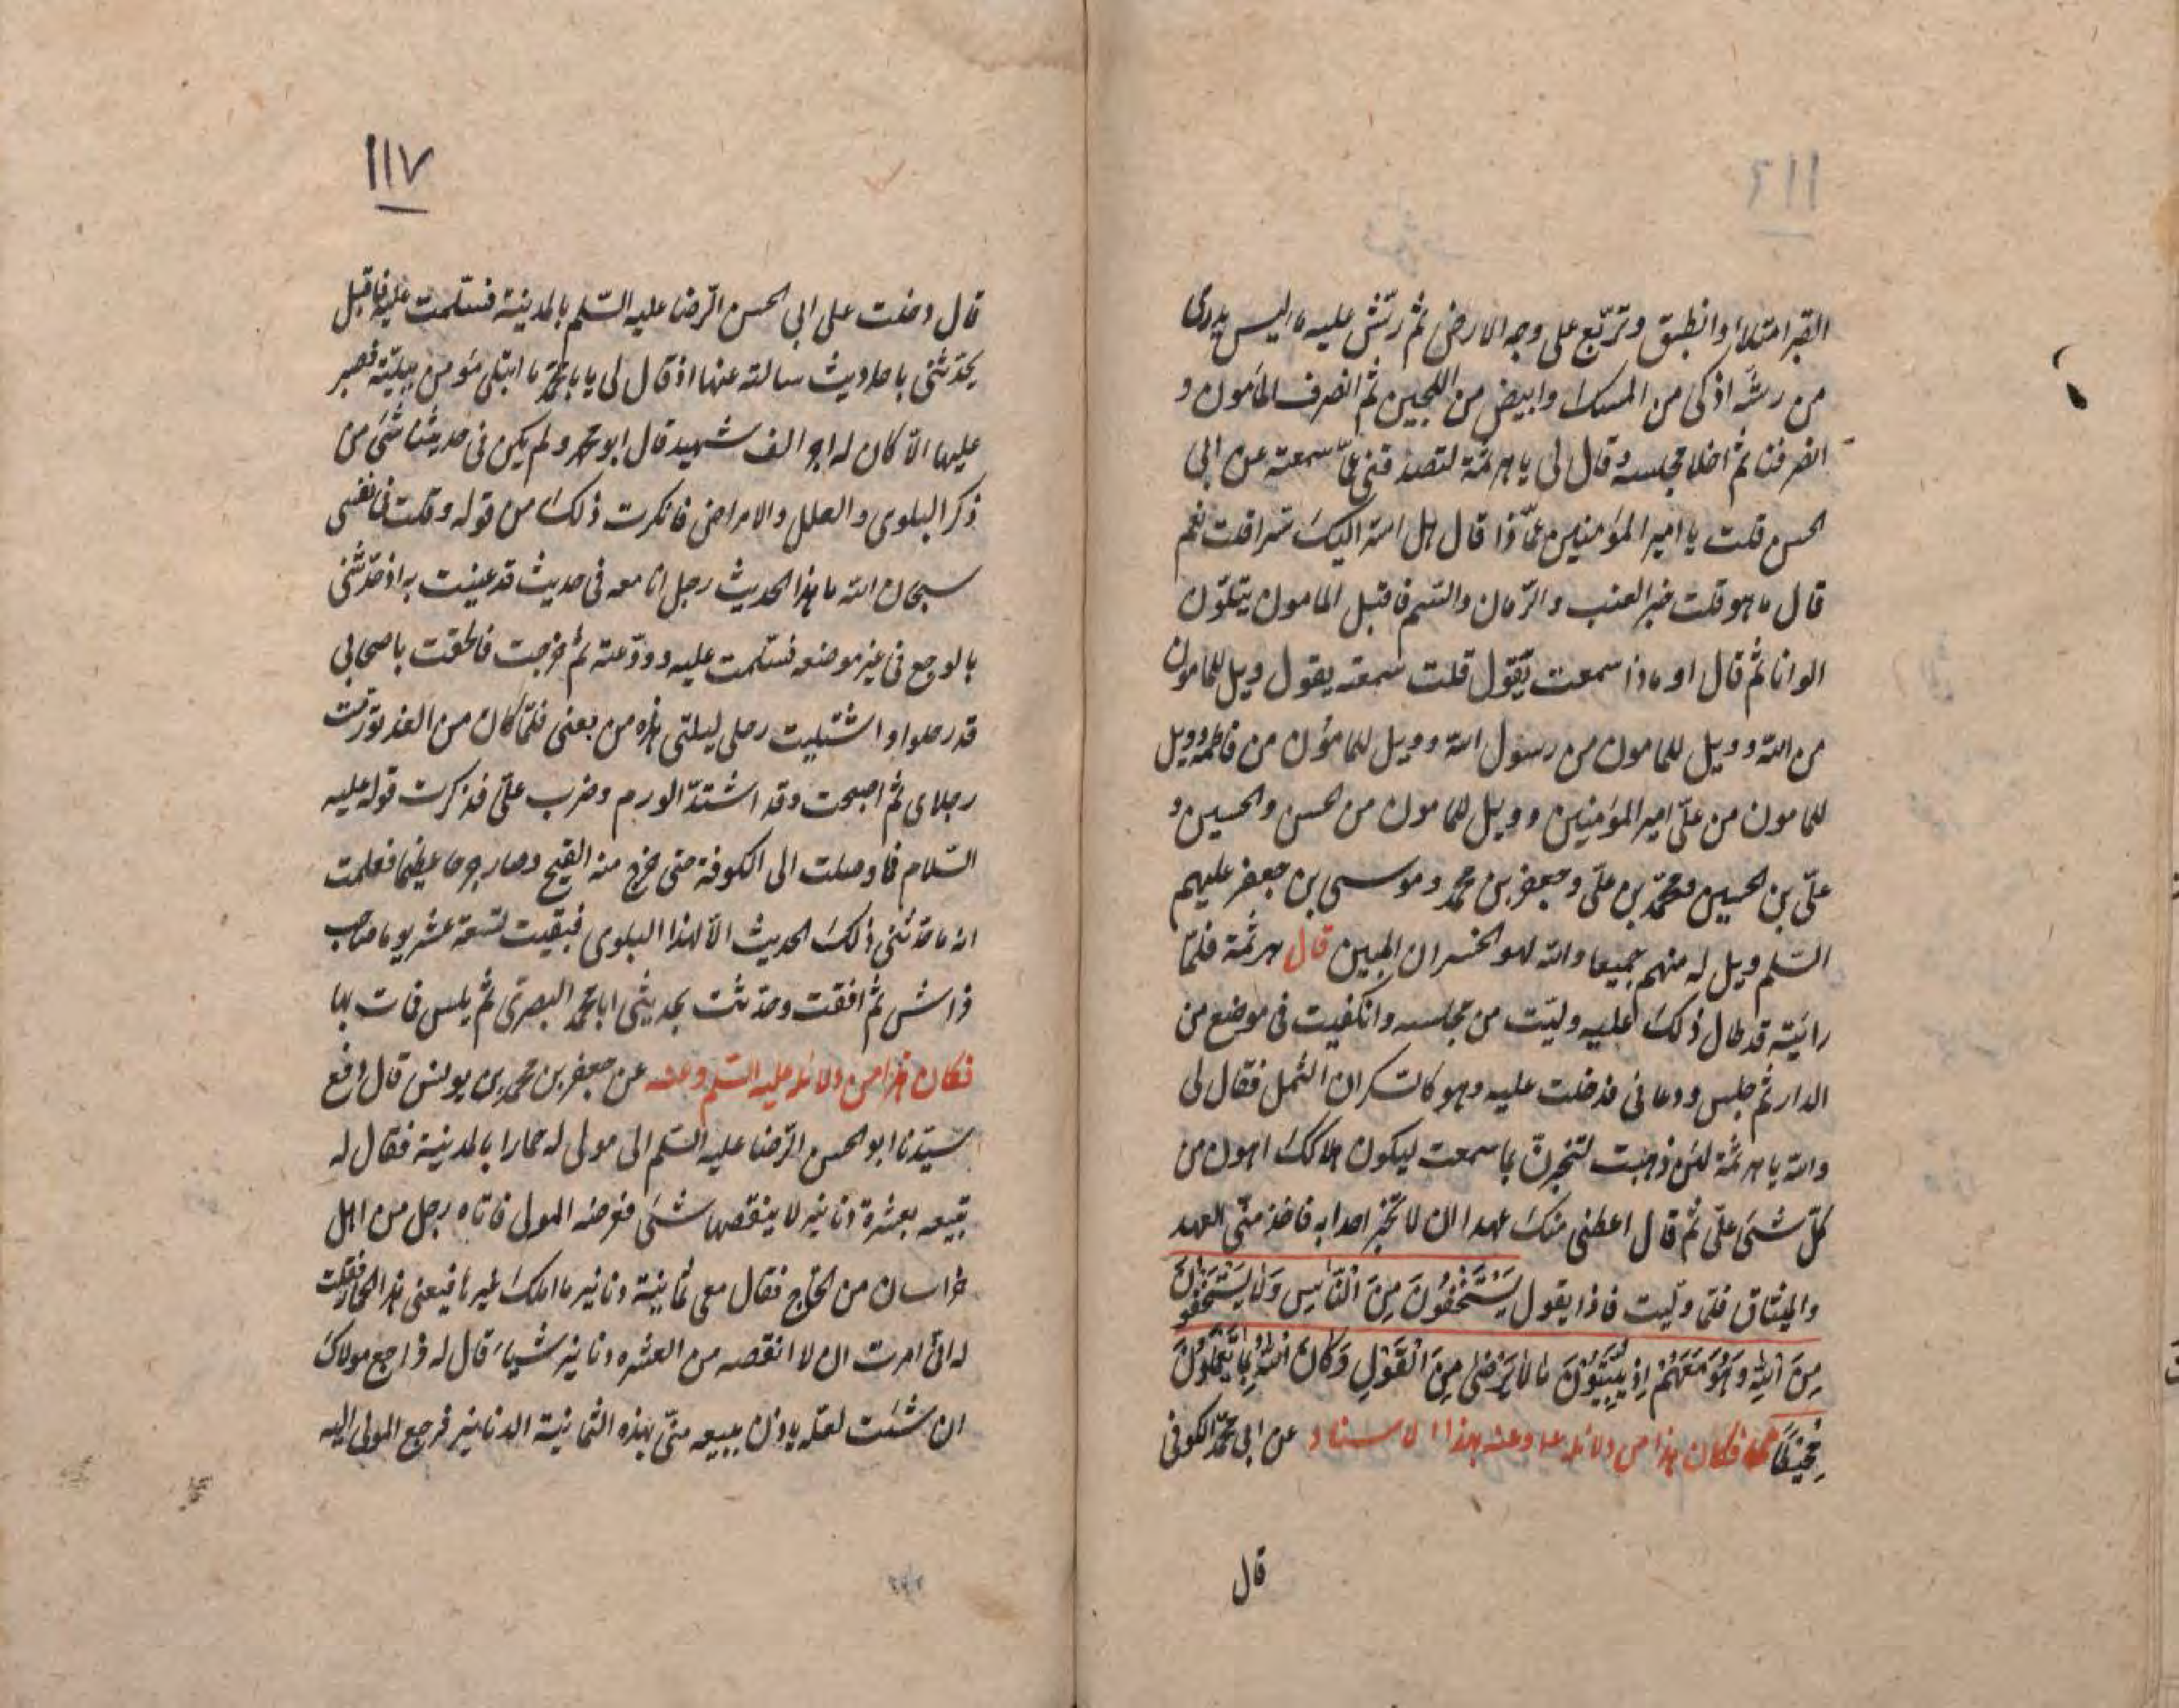 ١١٦
القبر امتلاء وانطبق وتربّع على وجه الارض ثم رشّ عليه ما ليس يدرى
من رشّه اذكى من المسك وابيض من اللجين ثم انصرف المأمون و
انصرفنا ثم اخلا مجلسه وقال لى يا هرثمة لتصدقنى عمّا سمعته عن ابى
الحسن قلت يا امير المؤمنين عمّا ذا قال هل اسرّ اليك سرا قلت نعم
قال ما هو قلت خبر العنب والرّمان والسّم فاقبل المامون يتلوّن
الوانا ثم قال او ماذا سمعت يقول قلت سمعته يقول ويل للمامون
من اللّه وويل للمامون من رسول اللّه وويل للمامون من فاطمة وويل
للمامون من علىّ امير المؤمنين وويل للمامون من الحسن والحسين و
علىّ بن الحسين ومحمّد بن علىّ وجعفر بن محمد وموسى بن جعفر عليهم
السّلم ويل له منهم جميعا واللّه لهو الخسران المبين قال هرثمة فلمّا
رايته قد طال ذلك عليه ولّيت من مجلسه وانكفيت فى موضع من
الدار ثم جلس ودعانى فدخلت عليه وهو كالسّكران الثمل فقال لى
واللّه يا هرثمة لئن ذهبت لتخبرنّ بما سمعت ليكون هلاكك اهون من
كلّ شئ علىّ ثم قال اعطنى منك عهدا ان لا تخبر احدا به فاخذ منّى العهد
والميثاق فلمّا ولّيت فاذا يقول يَسْتَخْفُونَ مِنَ النَّاسِ وَلَا يَسْتَخْفُونَ
مِنَ اللّهِ وَهُوَ مَعَهُمْ اِذْ يُبَيِّتُونَ مَا لَا يَرْضَى مِنَ الْقَوْلِ وَكَانَ اللّهُ بِمَا يَعْمَلُونَ
مُحِيطًا فكان هذا من دلائله ع‍ وعنه بهذا الاسناد عن ابى محمّد الكوفى
قال
١١٧
قال دخلت على ابى الحسن الرّضا عليه السّلم بالمدينة فسلّمت عليه فاقبل
يحدّثنى باحاديث سالته عنها اذ قال لى يا با محمّد ما ابتلى مؤمن ببليّة فصبر
عليها الّا كان له اجر الف شهيد قال ابو محمد ولم يكن فى حديثنا شئ من
ذكر البلوى والعلل والامراض فانكرت ذلك من قوله وقلت فى نفسى
سبحان اللّه ما هذا الحديث رجل انا معه فى حديث قد عنيت به اذ حدّثنى
بالوجع فى غير موضعه فسلّمت عليه وودّعته ثم خرجت فالحقت باصحابى
قد رحلوا واشتكيت رجلى ليلتى هذه من بعنى فلمّا كان من الغد تورّمت
رجلاى ثم اصبحت وقد اشتدّ الورم وضرب علىّ فذكرت قوله عليه
السّلام فما وصلت الى الكوفة حتى خرج منه القيح وصار جرحا عظيما فعلمت
انه ما حدّثنى ذلك الحديث الّا لهذا البلوى فبقيت تسعة عشر يوما صاحب
فراش ثم افقت وحدّثت بحديثى ابا محمّد البصرىّ ثم يلبس فمات بها
فكان هذا من دلائله عليه السّلم وعنه عن جعفر بن محمد بن يونس قال دفع
سيّدنا ابو الحسن الرّضا عليه السّلم الى مولى له حمارا بالمدينة فقال له
تبيعه بعشرة دنانير لا ينقصها شئ فعرضه المولى فاتاه رجل من اهل
خراسان من الحاج فقال معى ثمانية دنانير ما املك غيرها فبعنى هذا الحمار فقلت
له انّى امرت ان لا انقصه من العشره دنانير شيأ قال له فراجع مولاك
ان شئت لعلّه ياذن ببيعه منّى بهذه الثمانية الدنانير فرجع المولى اليه